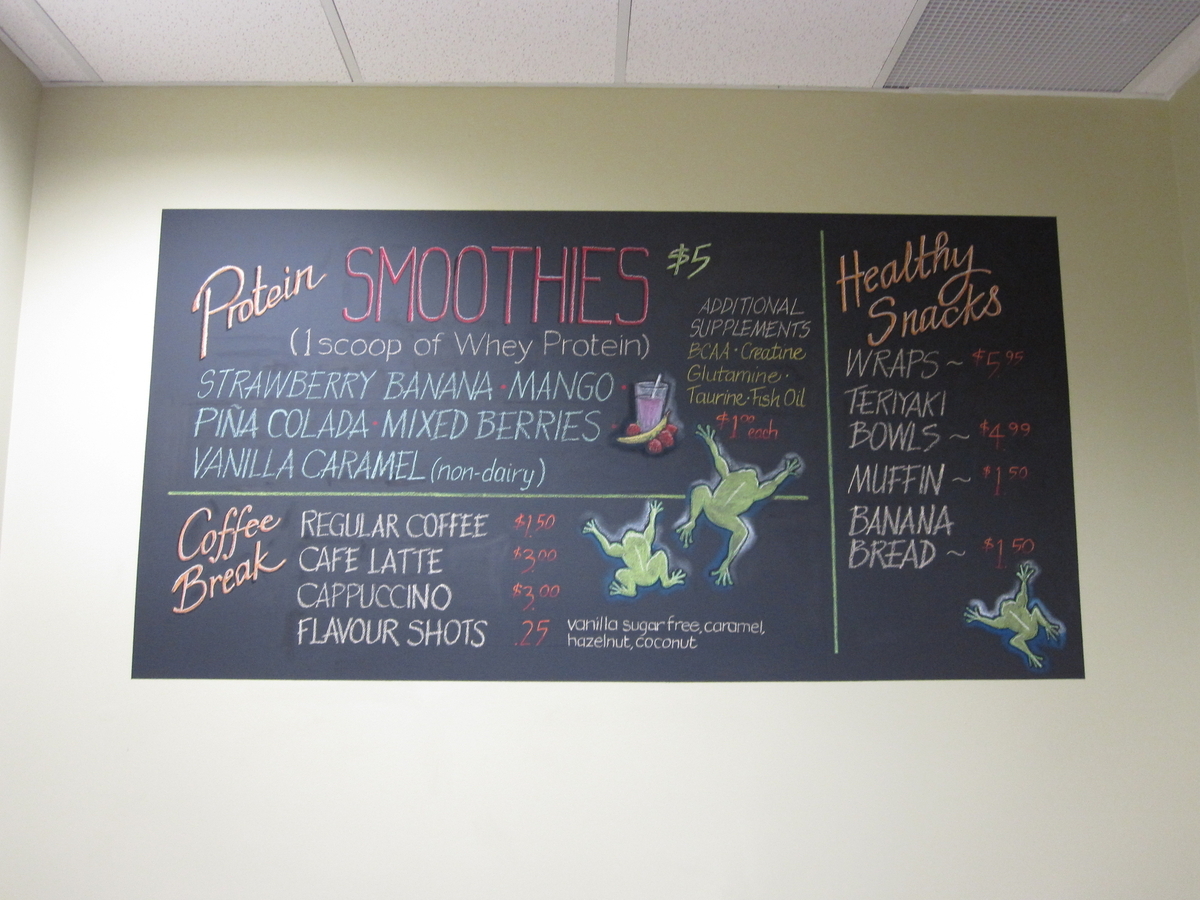 Protein SMOOTHIES $5
(1 scoop of Whey Protein)
STRAWBERRY BANANA · MANGO ·
PIÑA COLADA · MIXED BERRIES ·
VANILLA CARAMEL (non-dairy)
ADDITIONAL
SUPPLEMENTS
BCAA · Creatine
Glutamine ·
Taurine · Fish Oil
$1.00 each
Coffee
Break
REGULAR COFFEE $1.50
CAFE LATTE $3.00
CAPPUCCINO $3.00
FLAVOUR SHOTS .25
vanilla sugar free, caramel,
hazelnut, coconut
Healthy
Snacks
WRAPS ~ $5.95
TERIYAKI
BOWLS ~ $4.99
MUFFIN ~ $1.50
BANANA
BREAD ~ $1.50